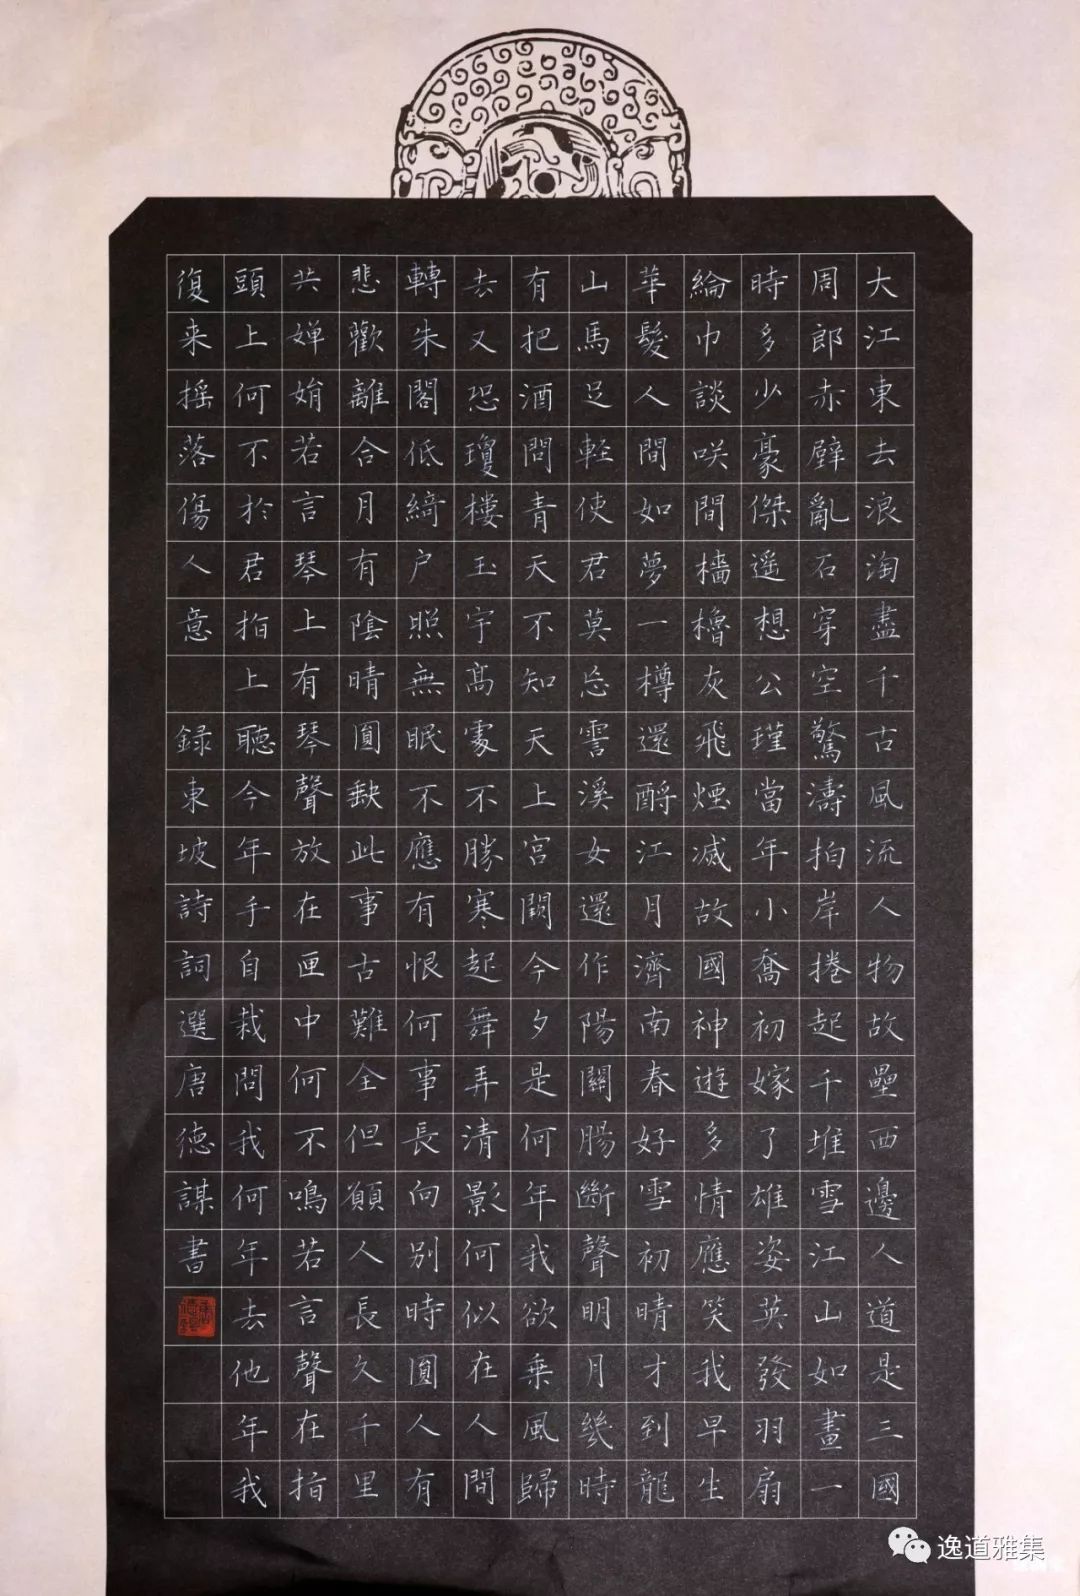 大江東去浪淘盡千古風流人物故壘西邊人道是三國
周郎赤壁亂石穿空驚濤拍岸捲起千堆雪江山如畫一
時多少豪傑遥想公瑾當年小喬初嫁了雄姿英發羽扇
綸巾談咲間檣櫓灰飛煙滅故國神遊多情應笑我早生
華髮人間如夢一樽還酹江月濟南春好雪初晴才到龍
山馬足軽使君莫忘霅溪女還作陽關腸斷聲明月幾時
有把酒問青天不知天上宮闕今夕是何年我欲乗風歸
去又恐瓊樓玉宇髙處不勝寒起舞弄清影何似在人間
轉朱閣低綺户照無眠不應有恨何事長向别時圓人有
悲歡離合月有陰晴圓缺此事古難全但願人長久千里
共嬋娟若言琴上有琴聲放在匣中何不鳴若言聲在指
頭上何不於君指上聽今年手自栽問我何年去他年我
復来摇落傷人意 録東坡詩詞選唐德謀書
逸道雅集